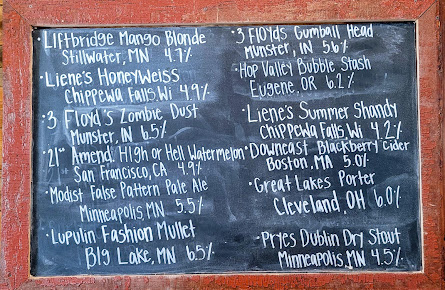 • Liftbridge Mango Blonde
Stillwater, MN 4.7%
• Liene's HoneyWeiss
Chippewa Falls, Wi 4.9%
• 3 Floyd's Zombie Dust
Munster, IN 6.5%
• 21st Amend. High or Hell Watermelon
San Francisco, CA 4.9%
• Modist False Pattern Pale Ale
Minneapolis, MN 5.5%
• Lupulin Fashion Mullet
Big Lake, MN 6.5%
• 3 Floyds Gumball Head
Munster, IN 5.6%
• Hop Valley Bubble Stash
Eugene, OR 6.2%
• Liene's Summer Shandy
Chippewa Falls, Wi 4.2%
• Downeast Blackberry Cider
Boston, MA 5.0%
• Great Lakes Porter
Cleveland, OH 6.0%
• Pryes Dublin Dry Stout
Minneapolis, MN 4.5%